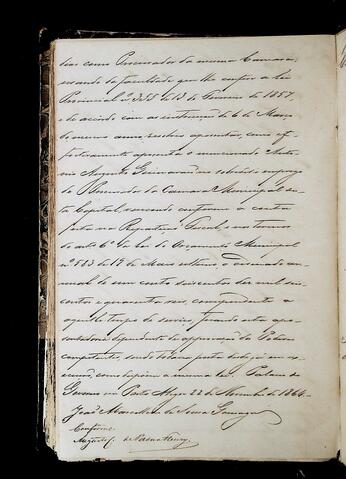 dias como Procurador da mesma Camara,
usando da faculdade que lhe confere a lei
Provincial nº 355 de 13 de Fevereiro de 1857,
e de accordo com as instrucções de 6 de Março
do mesmo anno, resolve aposentar, como ef-
fectivamente aposenta o mencionado Anto-
nio Augusto Guimarães no sobredito emprego
de Procurador da Camara Municipal des-
ta Capital, vencendo conforme a conta
feita na Repartição Fiscal, e nos termos
do artº 6º da lei do Orçamento Municipal
nº 583 de 17 de Maio ultimo, o ordenado an-
nual de um conto seiscentos e mil seis-
centos e quarenta reis, correspondente a
aquelle tempo de serviço, ficando esta apo-
sentadoria dependente de approvação do Poder
competente, sendo todavia posta desde já em ex-
ecução, como dispõe a mesma lei. Palacio do
Governo em Porto Alegre 22 de Novembro de 1864.
João Marcellino de Souza Gonzaga
Conforme
Augusto C. de Padua Fleury